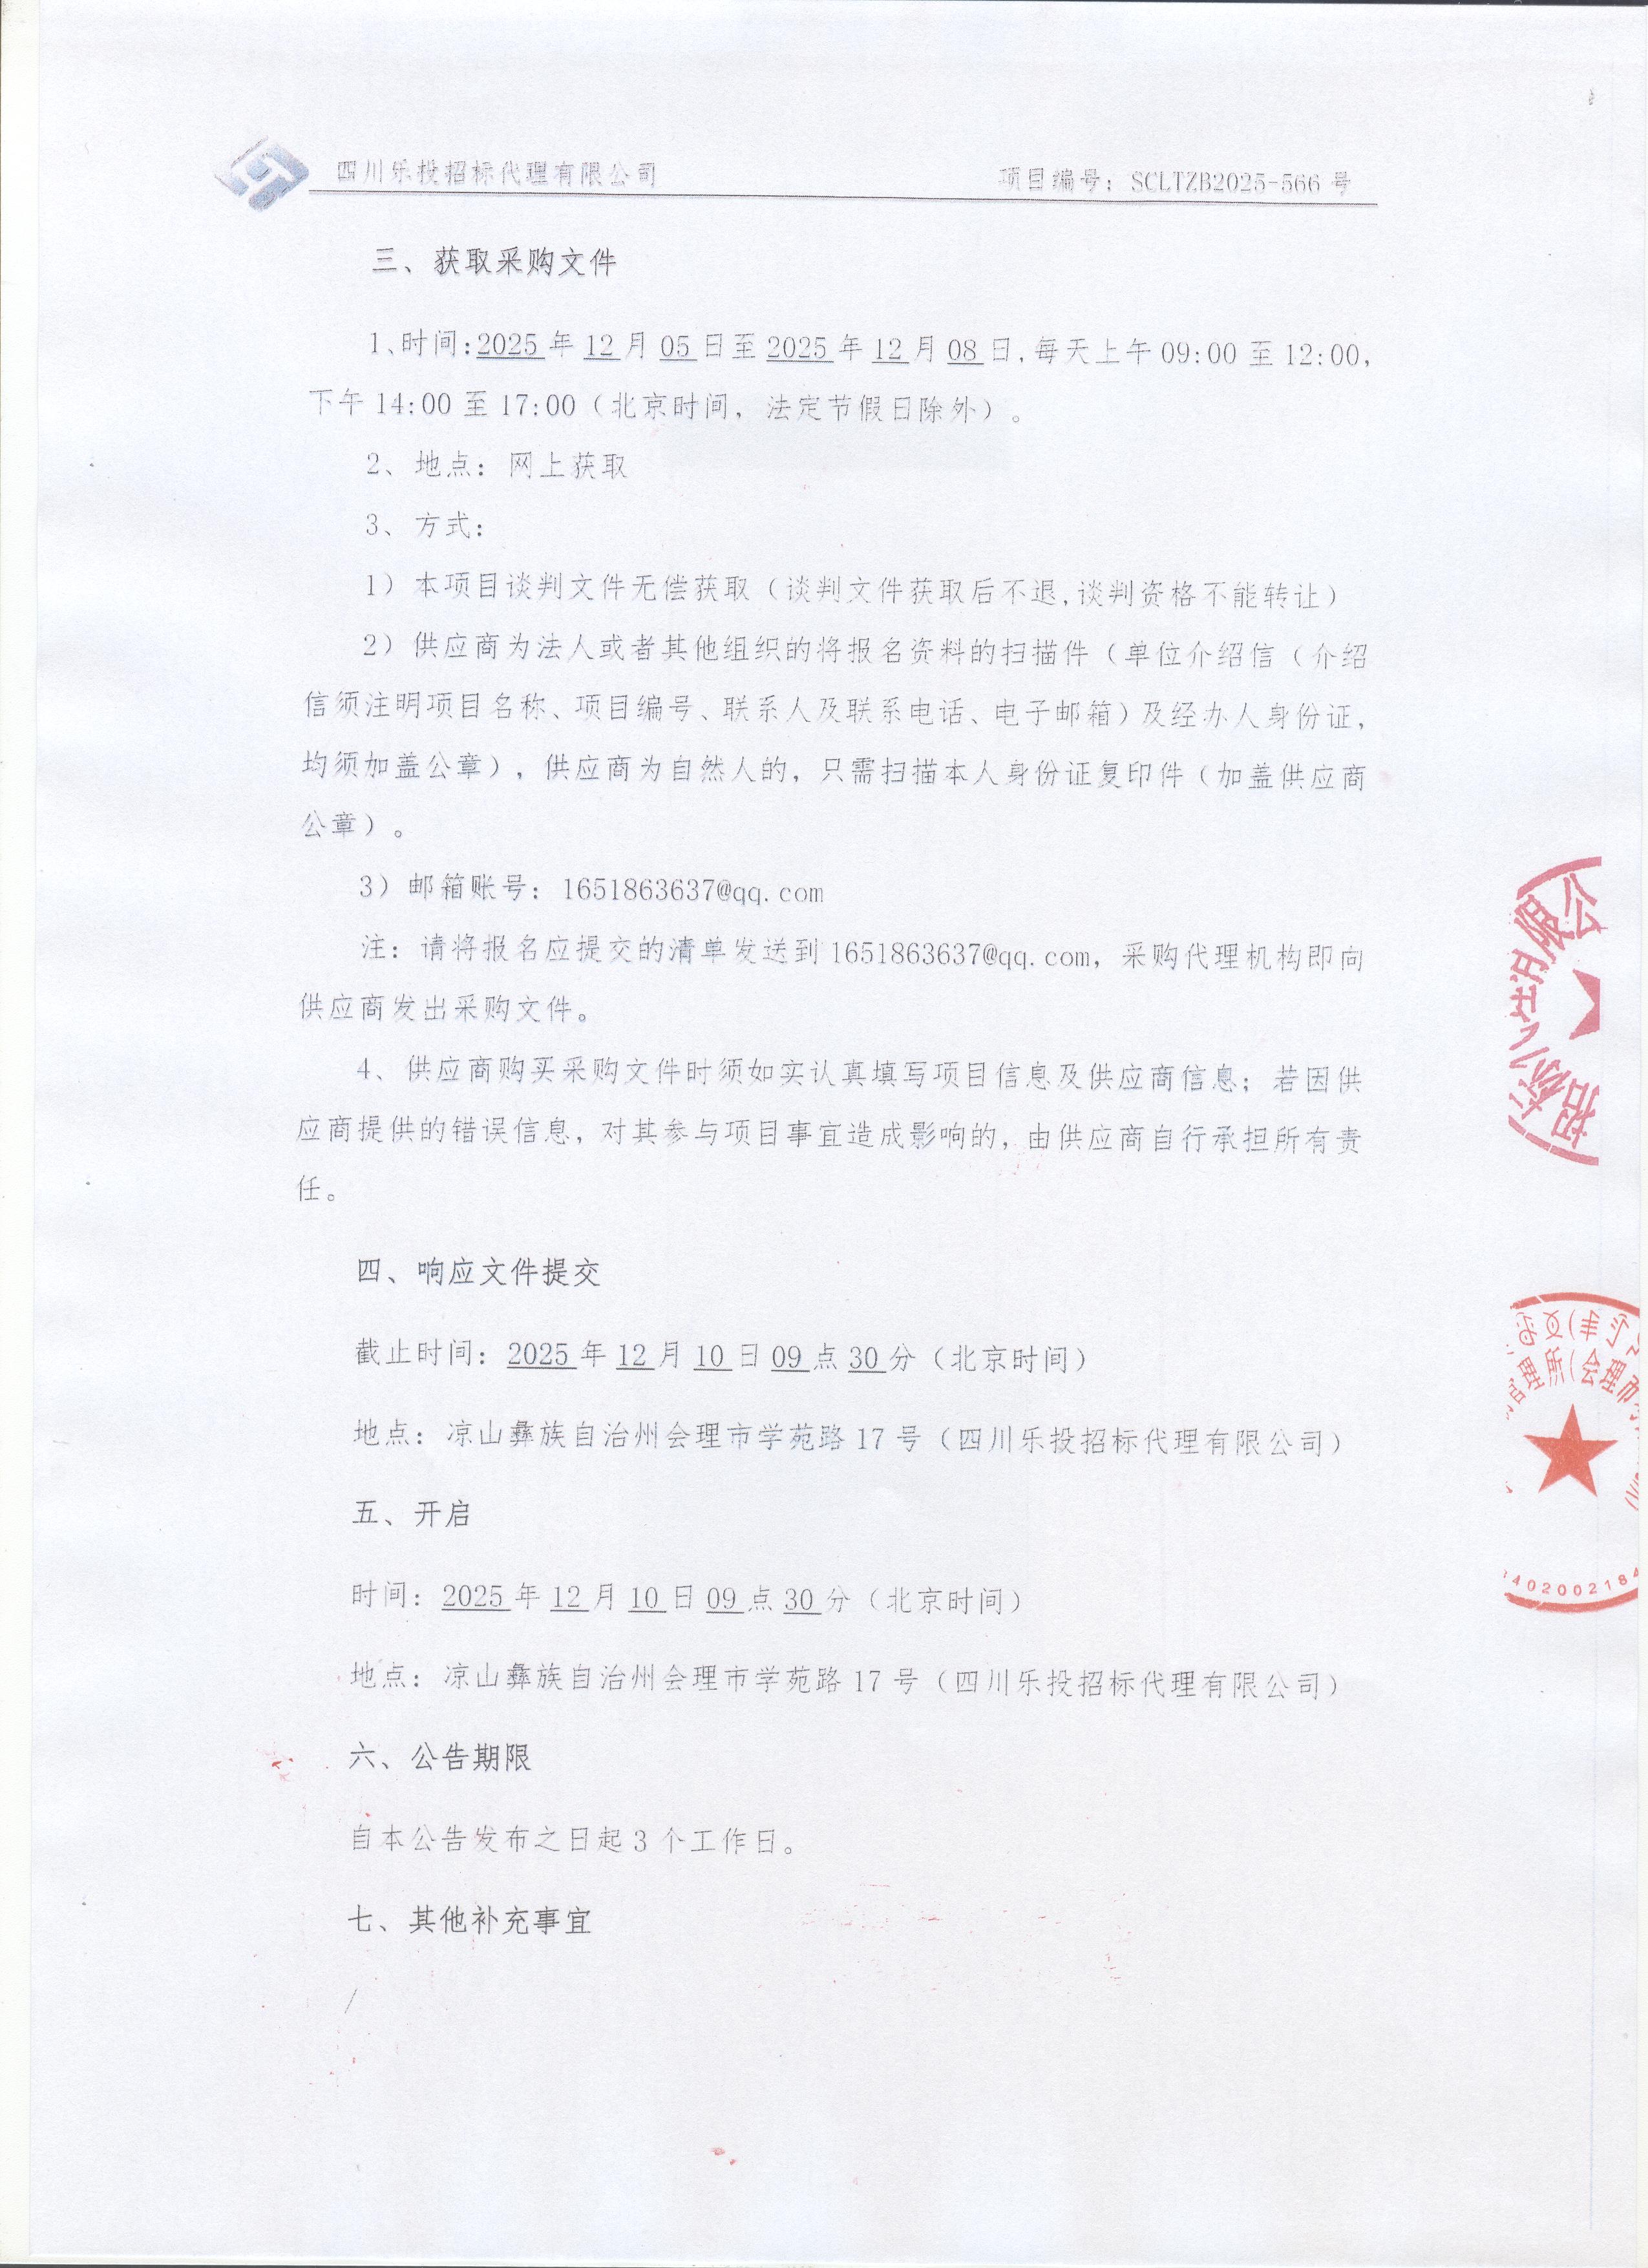 四川乐投招标代理有限公司
项目编号：SCLTZB2025-566 号
三、获取采购文件
1、时间:2025 年 12 月 05 日至 2025 年 12 月 08 日,每天上午 09:00 至 12:00,
下午 14:00 至 17:00（北京时间，法定节假日除外）。
2、地点：网上获取
3、方式：
1）本项目谈判文件无偿获取（谈判文件获取后不退,谈判资格不能转让）
2）供应商为法人或者其他组织的将报名资料的扫描件（单位介绍信（介绍
信须注明项目名称、项目编号、联系人及联系电话、电子邮箱）及经办人身份证，
均须加盖公章），供应商为自然人的，只需扫描本人身份证复印件（加盖供应商
公章）。
3）邮箱账号：1651863637@qq.com
注：请将报名应提交的清单发送到 1651863637@qq.com，采购代理机构即向
供应商发出采购文件。
4、供应商购买采购文件时须如实认真填写项目信息及供应商信息；若因供
应商提供的错误信息，对其参与项目事宜造成影响的，由供应商自行承担所有责
任。
四、响应文件提交
截止时间：2025 年 12 月 10 日 09 点 30 分（北京时间）
地点：凉山彝族自治州会理市学苑路 17 号（四川乐投招标代理有限公司）
五、开启
时间：2025 年 12 月 10 日 09 点 30 分（北京时间）
地点：凉山彝族自治州会理市学苑路 17 号（四川乐投招标代理有限公司）
六、公告期限
自本公告发布之日起 3 个工作日。
七、其他补充事宜
/
招标
限公
理所(会理市
402002184